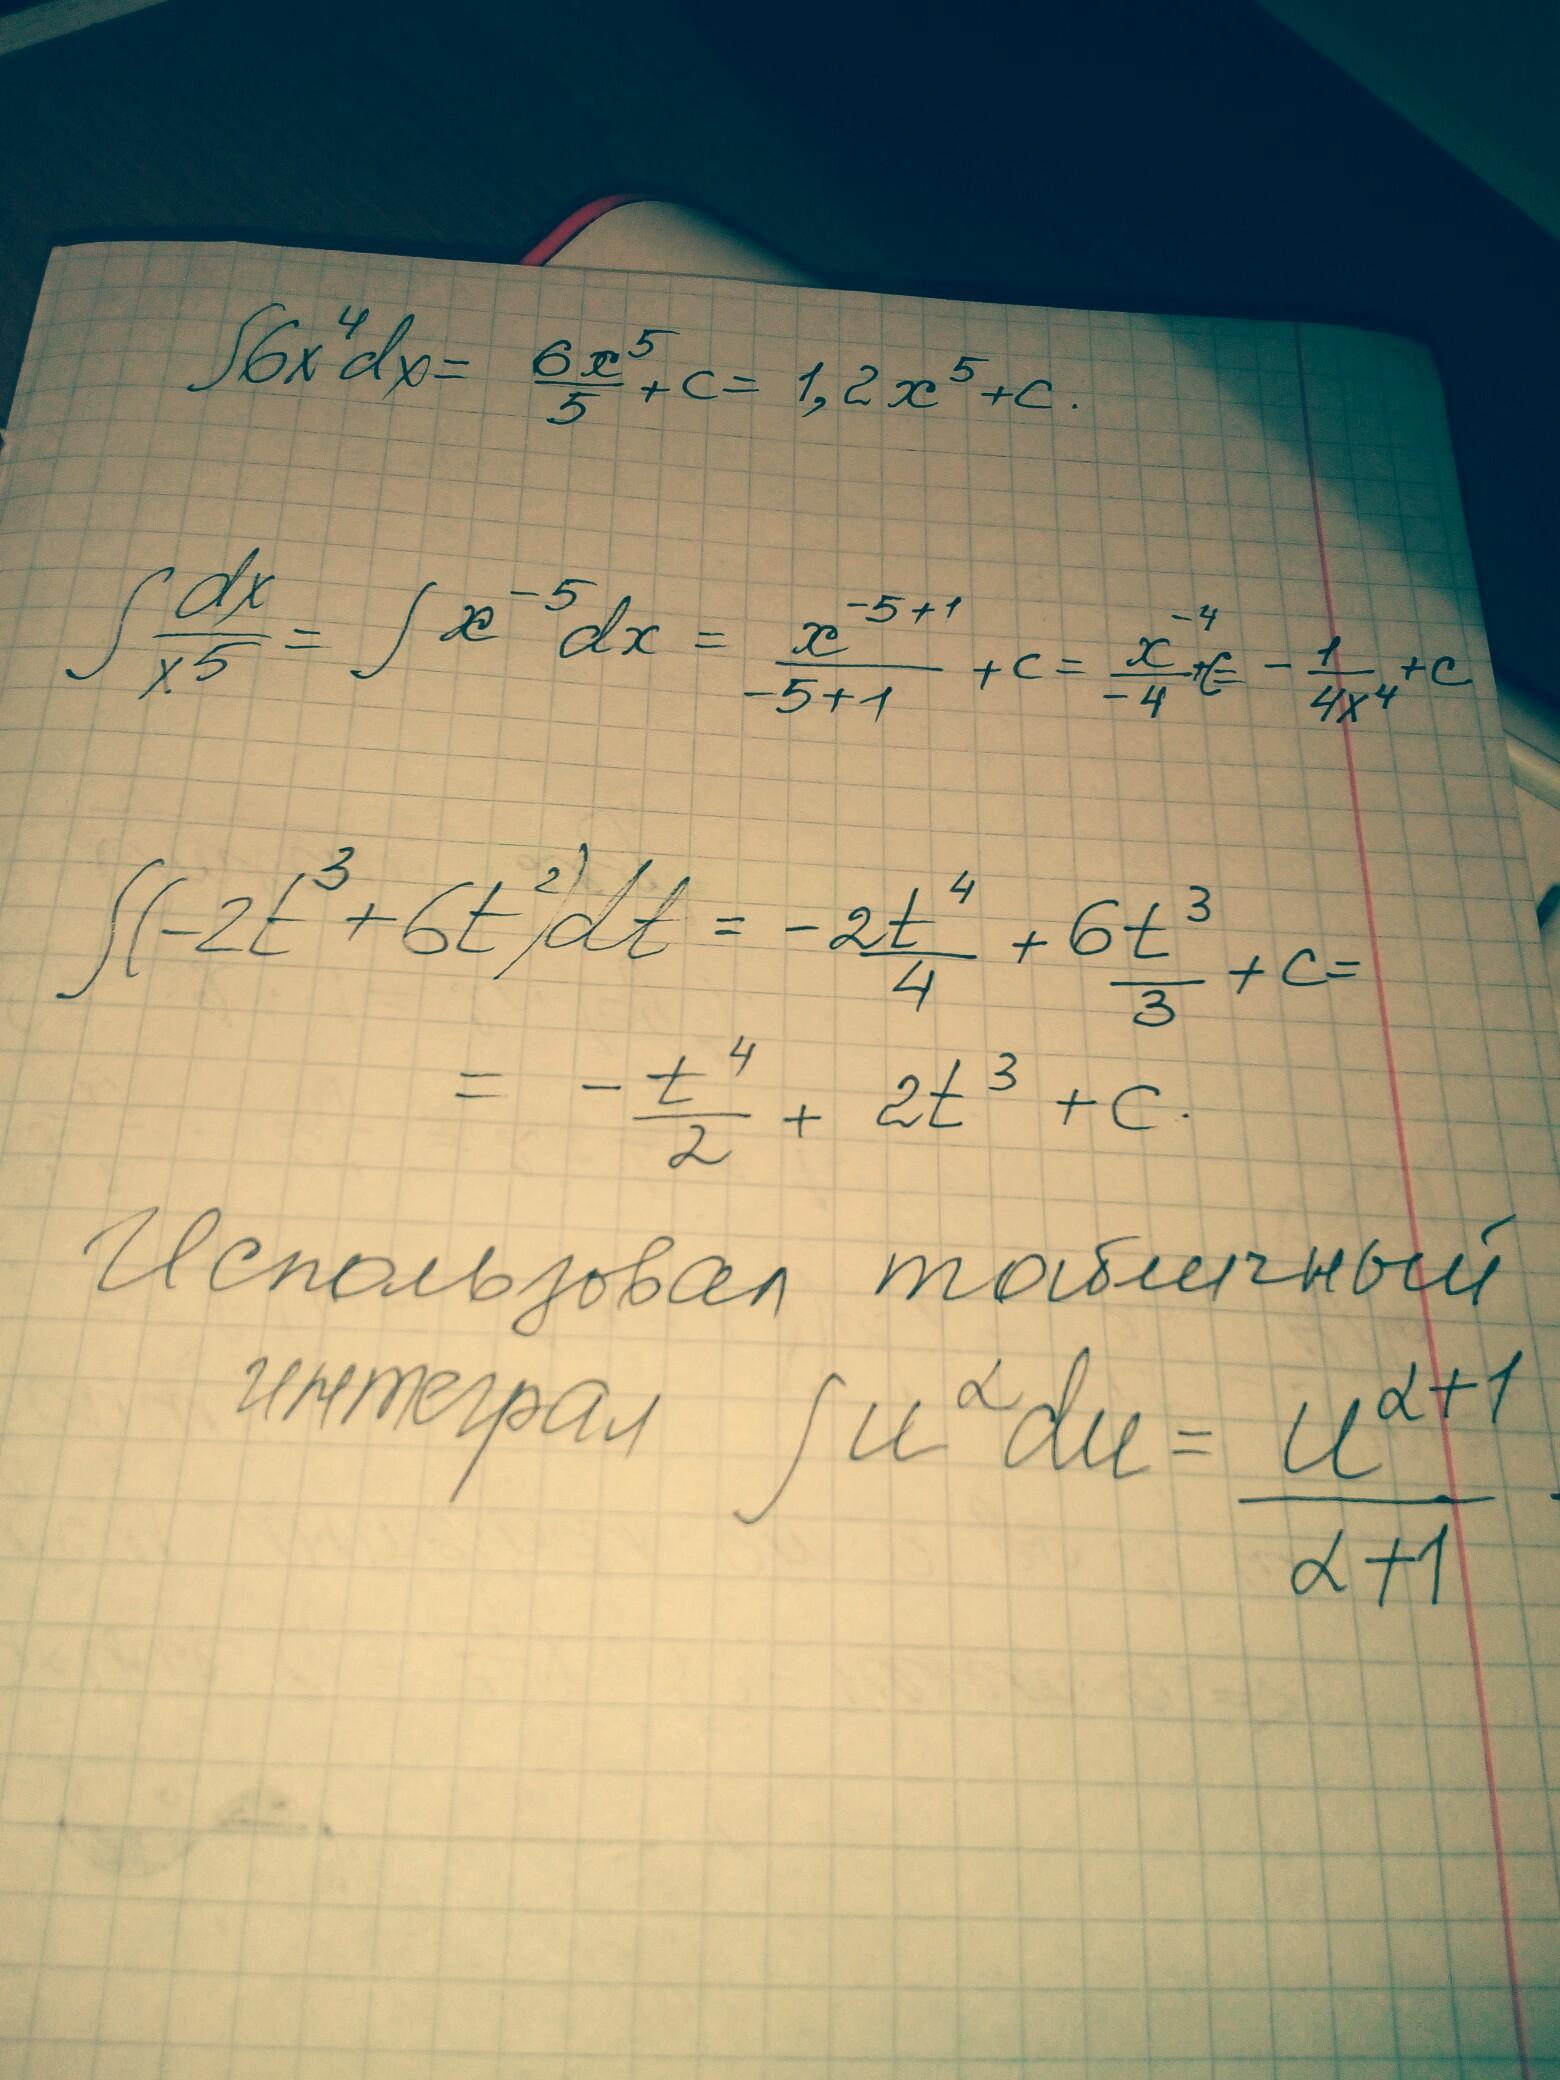 ∫6x⁴dx = 6x⁵/5 + c = 1,2x⁵ + c.
∫dx/x5 = ∫x⁻⁵dx = x⁻⁵⁺¹/-5+1 + c = x⁻⁴/-4 + c = -1/4x⁴ + c
∫(-2t³ + 6t²)dt = -2t⁴/4 + 6t³/3 + c =
= -t⁴/2 + 2t³ + c.
Использовал табличный
интеграл ∫u^α du = u^(α+1)/α+1